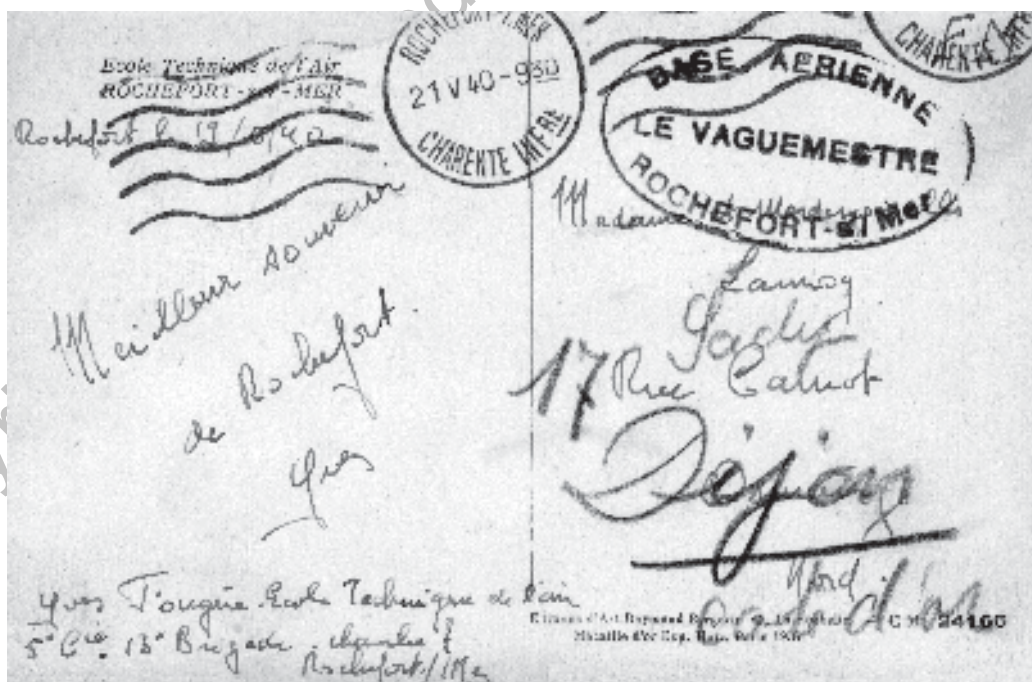 Ecole Technique de l'Air
ROCHEFORT-sur-MER
Rochefort le 19/5/40
Meilleur souvenir
de Rochefort.
Yves
Yves Fougère Ecole Technique de l'air
5e Cie 13e Brigade chambre
Rochefort/Mer
ROCHEFORT-S-MER
21 V 40 - 930
CHARENTE INFRE
CHARENTE INFRE
BASE AERIENNE
LE VAGUEMESTRE
ROCHEFORT-s/Mer
Madame
Lannoy
17 Rue Carnot
Dijon
Nord
Côte d'or
Editions d'Art Raymond
Médaille d'or Exp.
24166